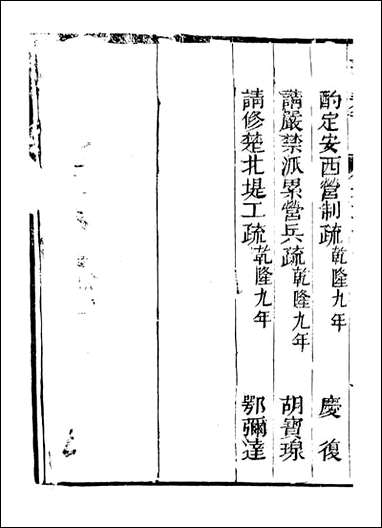 酌定安西營制疏乾隆九年 慶復
請嚴禁派累營兵疏乾隆九年 胡寶瑔
請修楚北堤工疏乾隆九年 鄂彌達